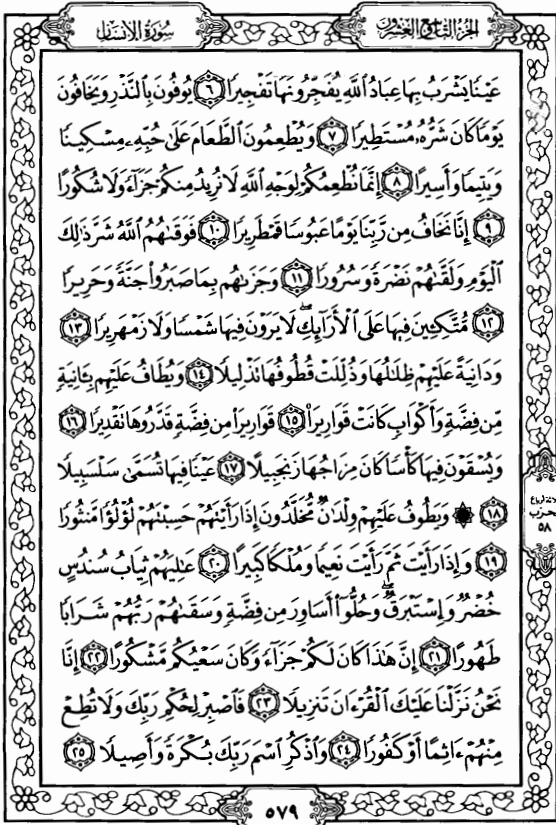 سُورَةُ الإِنسَان
الجُزْءُ التَّاسِعُ وَالعِشْرُونَ
عَيْنًا يَشْرَبُ بِهَا عِبَادُ ٱللَّهِ يُفَجِّرُونَهَا تَفْجِيرًا ٦ يُوفُونَ بِٱلنَّذْرِ وَيَخَافُونَ
يَوْمًا كَانَ شَرُّهُۥ مُسْتَطِيرًا ٧ وَيُطْعِمُونَ ٱلطَّعَامَ عَلَىٰ حُبِّهِۦ مِسْكِينًا
وَيَتِيمًا وَأَسِيرًا ٨ إِنَّمَا نُطْعِمُكُمْ لِوَجْهِ ٱللَّهِ لَا نُرِيدُ مِنكُمْ جَزَآءً وَلَا شُكُورًا
٩ إِنَّا نَخَافُ مِن رَّبِّنَا يَوْمًا عَبُوسًا قَمْطَرِيرًا ١٠ فَوَقَىٰهُمُ ٱللَّهُ شَرَّ ذَٰلِكَ
ٱلْيَوْمِ وَلَقَّىٰهُمْ نَضْرَةً وَسُرُورًا ١١ وَجَزَىٰهُم بِمَا صَبَرُوا۟ جَنَّةً وَحَرِيرًا
١٢ مُّتَّكِـِٔينَ فِيهَا عَلَى ٱلْأَرَآئِكِ ۖ لَا يَرَوْنَ فِيهَا شَمْسًا وَلَا زَمْهَرِيرًا ١٣
وَدَانِيَةً عَلَيْهِمْ ظِلَٰلُهَا وَذُلِّلَتْ قُطُوفُهَا تَذْلِيلًا ١٤ وَيُطَافُ عَلَيْهِم بِـَٔانِيَةٍ
مِّن فِضَّةٍ وَأَكْوَابٍ كَانَتْ قَوَارِيرَا۠ ١٥ قَوَارِيرَا۟ مِن فِضَّةٍ قَدَّرُوهَا تَقْدِيرًا ١٦
وَيُسْقَوْنَ فِيهَا كَأْسًا كَانَ مِزَاجُهَا زَنجَبِيلًا ١٧ عَيْنًا فِيهَا تُسَمَّىٰ سَلْسَبِيلًا
١٨ ۞ وَيَطُوفُ عَلَيْهِمْ وِلْدَٰنٌ مُّخَلَّدُونَ إِذَا رَأَيْتَهُمْ حَسِبْتَهُمْ لُؤْلُؤًا مَّنثُورًا
١٩ وَإِذَا رَأَيْتَ ثَمَّ رَأَيْتَ نَعِيمًا وَمُلْكًا كَبِيرًا ٢٠ عَٰلِيَهُمْ ثِيَابُ سُندُسٍ
خُضْرٌ وَإِسْتَبْرَقٌ ۖ وَحُلُّوٓا۟ أَسَاوِرَ مِن فِضَّةٍ وَسَقَىٰهُمْ رَبُّهُمْ شَرَابًا
طَهُورًا ٢١ إِنَّ هَٰذَا كَانَ لَكُمْ جَزَآءً وَكَانَ سَعْيُكُم مَّشْكُورًا ٢٢ إِنَّا
نَحْنُ نَزَّلْنَا عَلَيْكَ ٱلْقُرْءَانَ تَنزِيلًا ٢٣ فَٱصْبِرْ لِحُكْمِ رَبِّكَ وَلَا تُطِعْ
مِنْهُمْ ءَاثِمًا أَوْ كَفُورًا ٢٤ وَٱذْكُرِ ٱسْمَ رَبِّكَ بُكْرَةً وَأَصِيلًا ٢٥
ثلاثة أرباع
الحزب
٥٨
٥٧٩